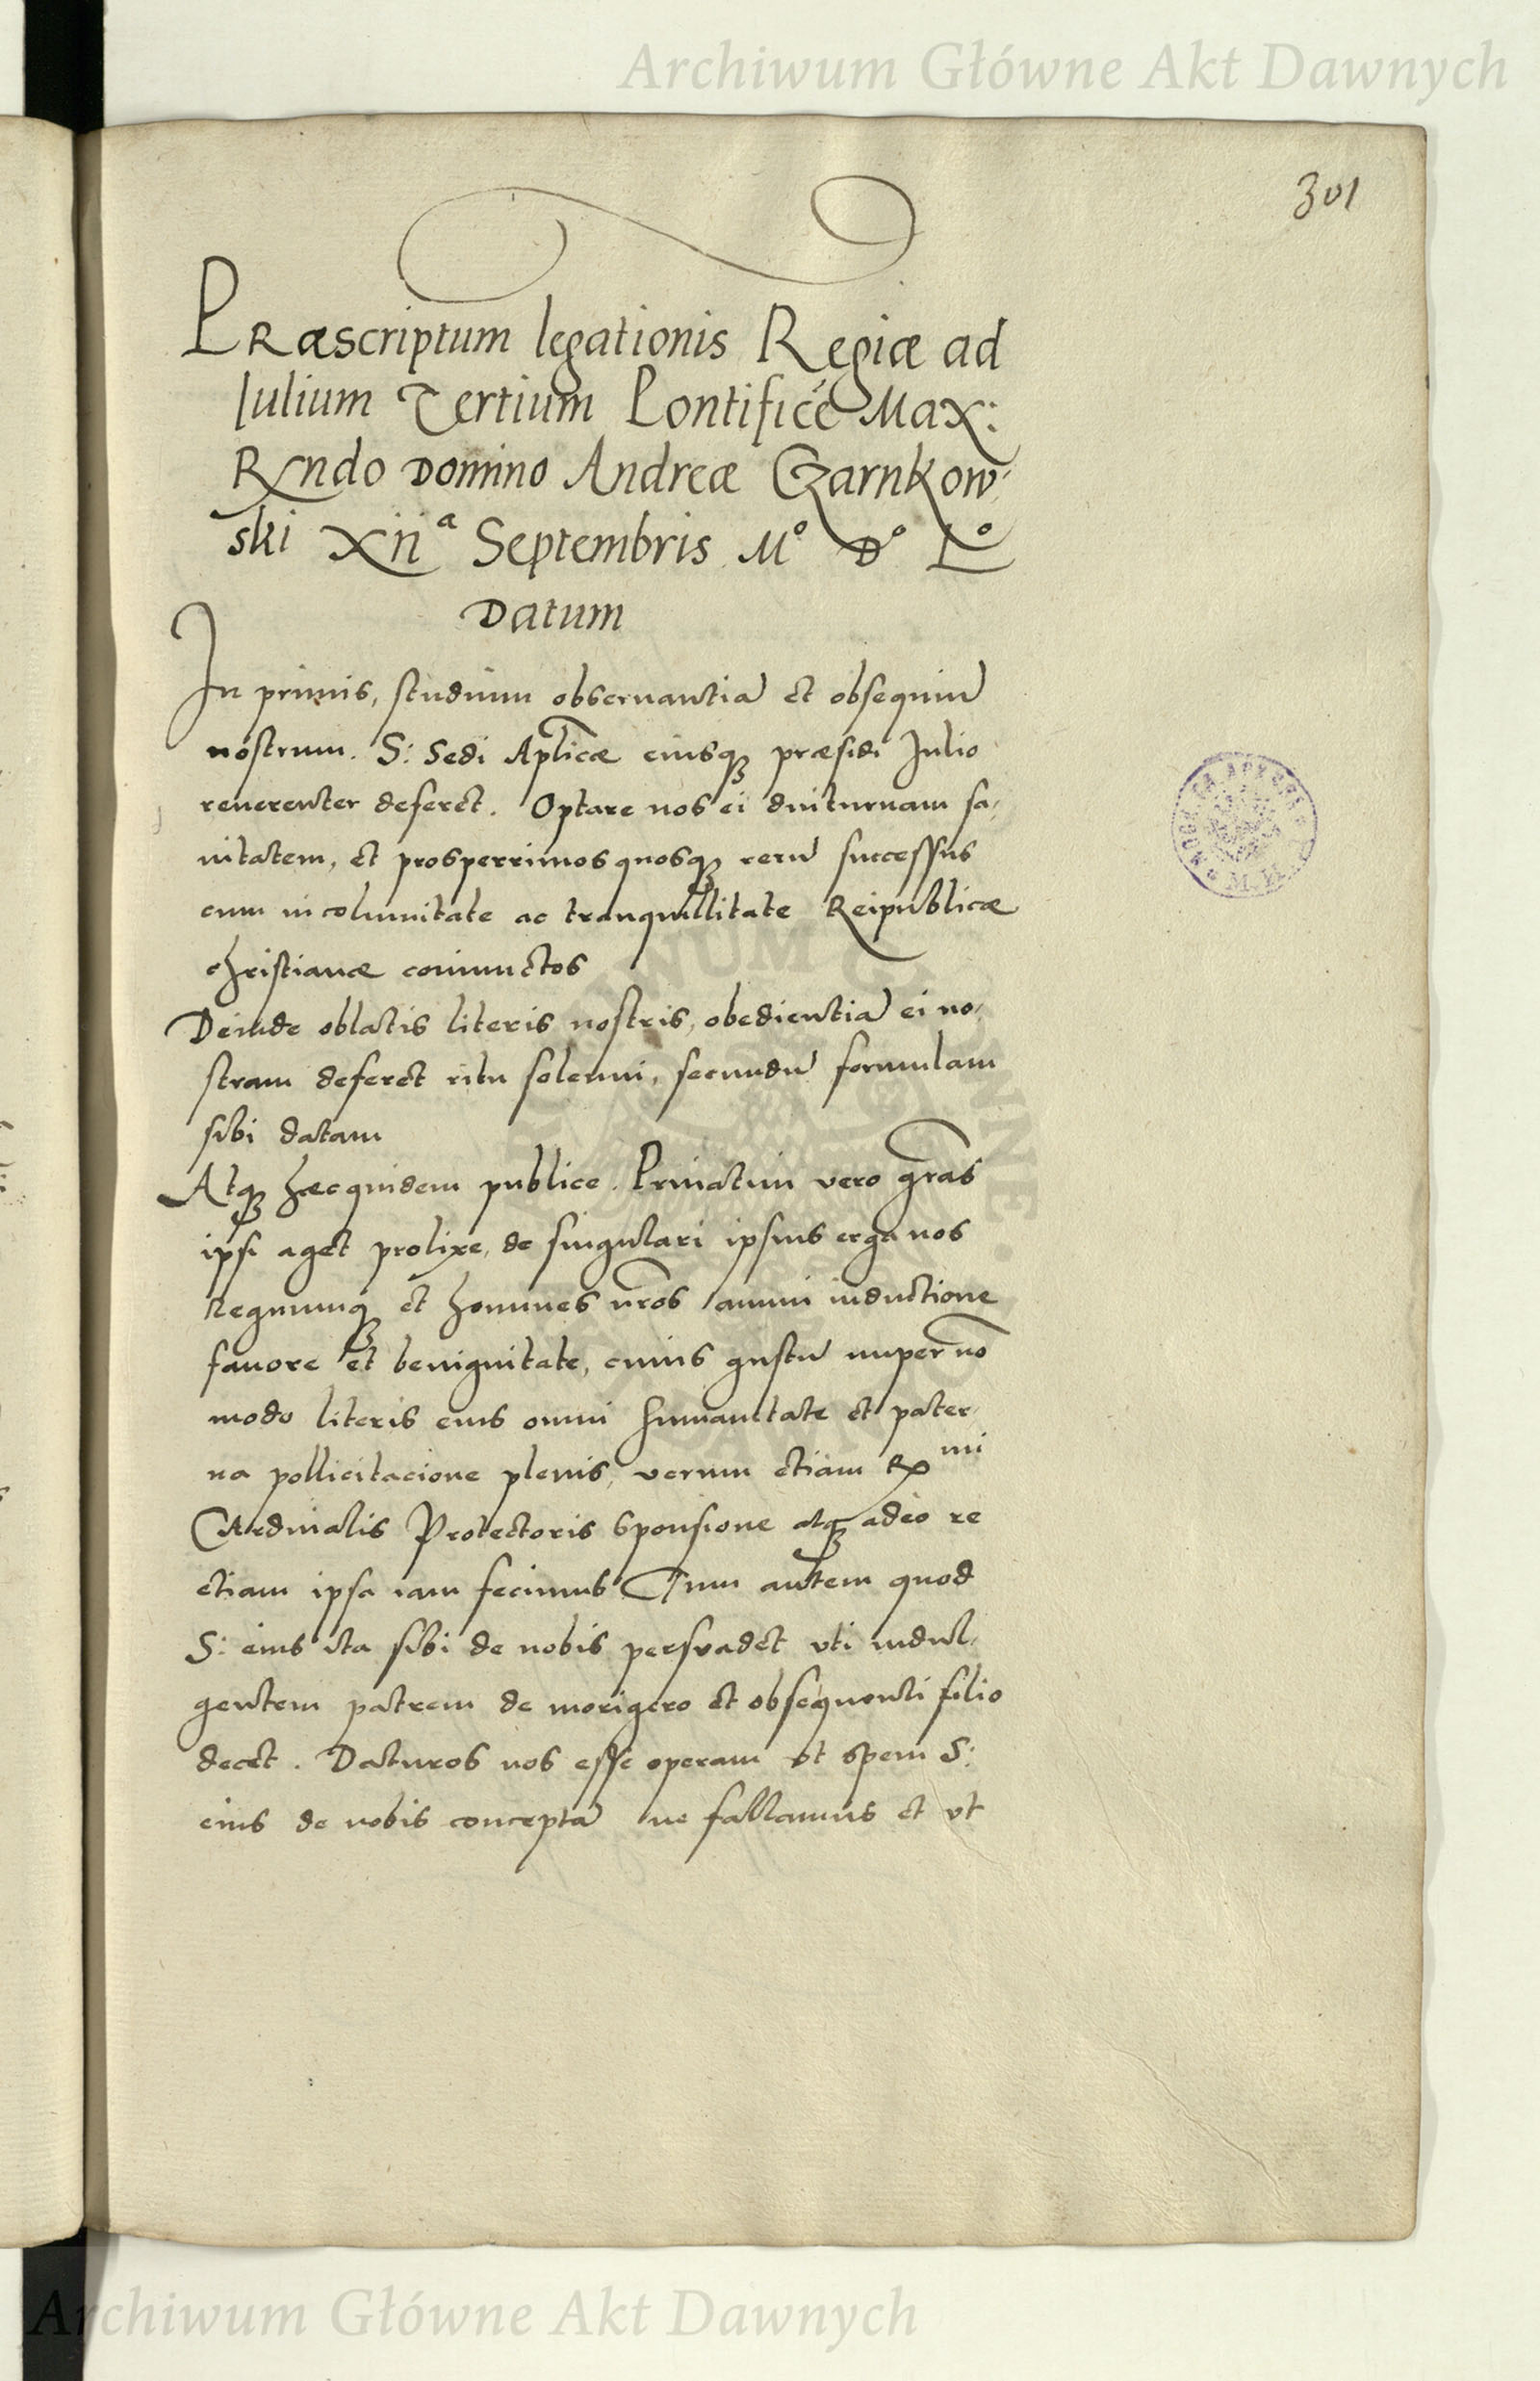 Archiwum Główne Akt Dawnych
301
Præscriptum legationis Regiæ ad
Iulium Tertium Pontificē Max:
Rndo Domino Andreæ Czarnkow-
ski XIIª Septembris Mº Dº Lº
Datum
In primis, studium obseruantiā et obsequiū
nostrum. S: Sedi Aplicæ eiusq₃ præsidi Iulio
reuerenter deferet. Optare nos ei diuturnam sa-
nitatem, et prosperrimos quosq₃ rerū successus
cum incolumitate ac tranquillitate Reipublicæ
christianæ coniunctos
Deinde oblatis literis nostris, obedientiā ei no-
stram deferet ritu solenni, secundū formulam
sibi datam
Atq₃ hæc quidem publice. Priuatim vero gras
ipsi aget prolixe, de singulari ipsius erga nos
Regnumq₃ et homines nros animi inductione
fauore et benignitate, cuius gustū nuper no
modo literis eius omni humanitate et pater-
na pollicitacione plenis, verum etiam Rmi
Cardinalis Protectoris sponsione atq₃ adeo re
etiam ipsa iam fecimus Tum autem quod
S: eius ita sibi de nobis persuadet vti indul-
gentem patrem de morigero et obsequenti filio
decet. Daturos nos esse operam vt spem S:
eius de nobis conceptā ne fallamus et vt
Archiwum Główne Akt Dawnych